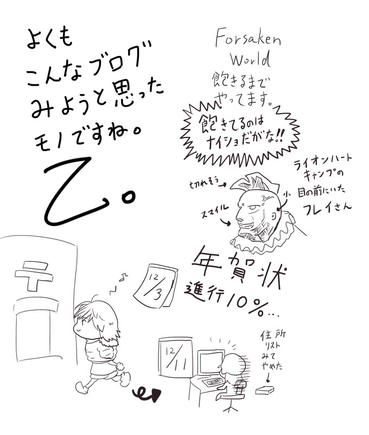 よくも
こんなブログ
みようと思った
モノですね。
乙。
Forsaken
World
飽きるまで
やってます。
飽きてるのは
ナイショだがな!!
切れそう
スマイル
小
ライオンハート
キャンプの
目の前にいた
フレイさん
年賀状
進行10%…
〒
♪
12/3
12/11
住所
リスト
みて
やめた